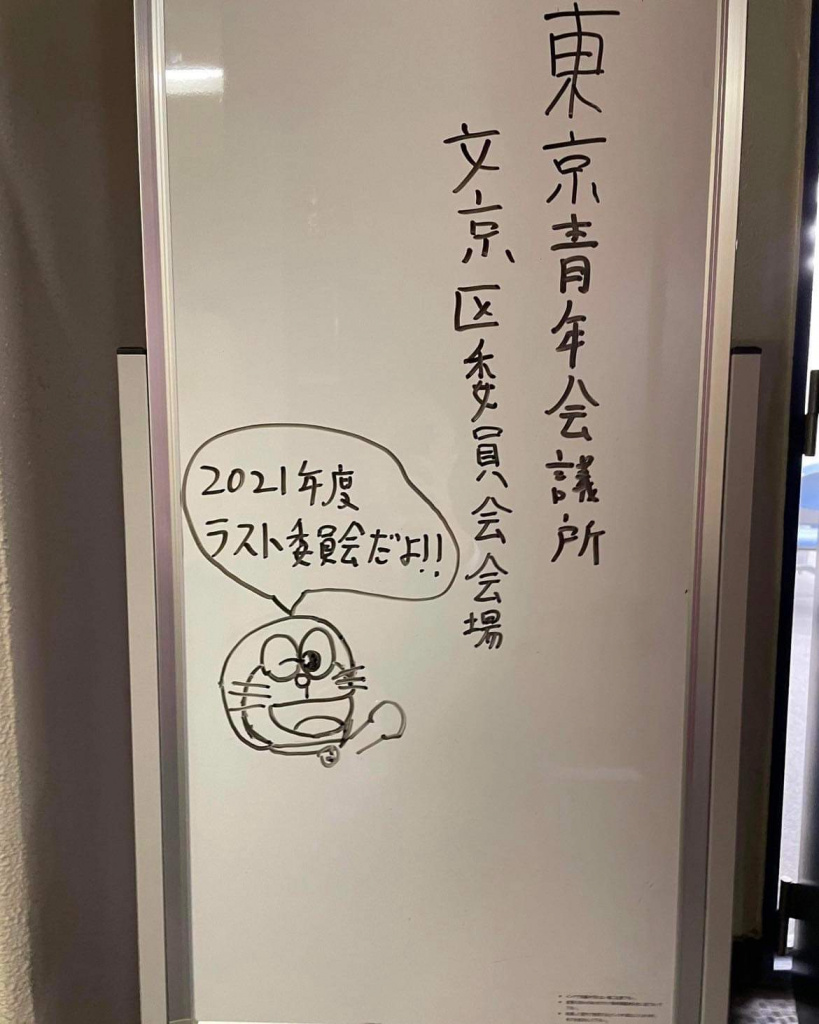 東京青年会議所
文京区委員会会場
2021年度
ラスト委員会だよ!!